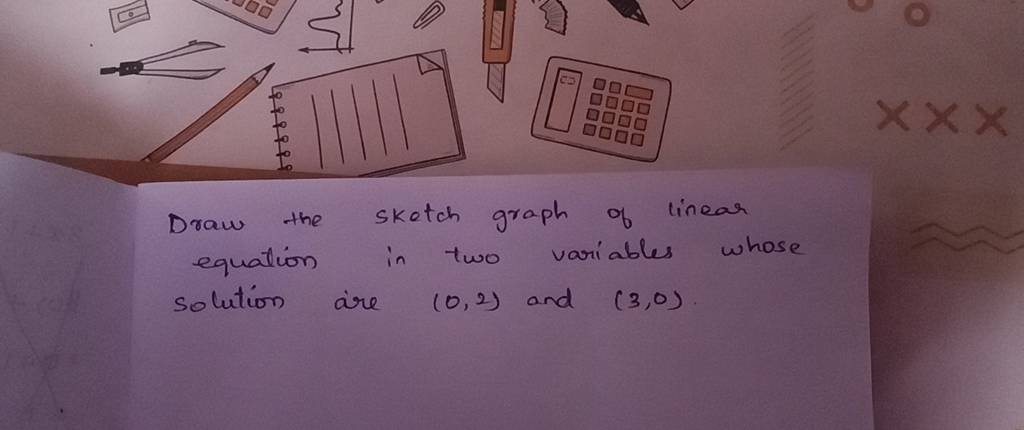 Draw the sketch graph of linear
equation in two variables whose
solution are (0,2) and (3,0).